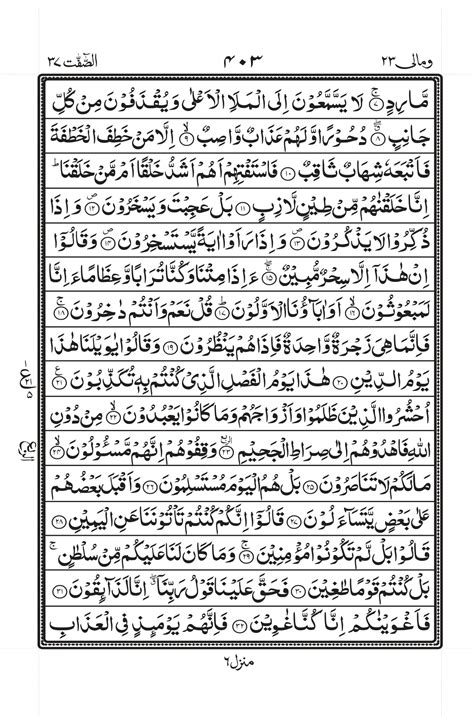 ومالی ٢٣ ٤٠٣ الصّٰفّٰت ٣٧
مَّارِدٍ ۚ ٧ لَا يَسَّمَّعُوْنَ اِلَى الْمَلَاِ الْاَعْلٰى وَيُقْذَفُوْنَ مِنْ كُلِّ
جَانِبٍ ۖ ٨ دُحُوْرًا وَّلَهُمْ عَذَابٌ وَّاصِبٌ ۙ ٩ اِلَّا مَنْ خَطِفَ الْخَطْفَةَ
فَاَتْبَعَهٗ شِهَابٌ ثَاقِبٌ ١٠ فَاسْتَفْتِهِمْ اَهُمْ اَشَدُّ خَلْقًا اَمْ مَّنْ خَلَقْنَا ؕ
اِنَّا خَلَقْنٰهُمْ مِّنْ طِيْنٍ لَّازِبٍ ١١ بَلْ عَجِبْتَ وَيَسْخَرُوْنَ ۪ ١٢ وَاِذَا
ذُكِّرُوْا لَا يَذْكُرُوْنَ ۪ ١٣ وَاِذَا رَاَوْا اٰيَةً يَّسْتَسْخِرُوْنَ ۪ ١٤ وَقَالُوْۤا
اِنْ هٰذَاۤ اِلَّا سِحْرٌ مُّبِيْنٌ ۚۖ ١٥ ءَاِذَا مِتْنَا وَكُنَّا تُرَابًا وَّعِظَامًا ءَاِنَّا
لَمَبْعُوْثُوْنَ ۙ ١٦ اَوَاٰبَآؤُنَا الْاَوَّلُوْنَ ؕ ١٧ قُلْ نَعَمْ وَاَنْتُمْ دٰخِرُوْنَ ۚ ١٨
فَاِنَّمَا هِىَ زَجْرَةٌ وَّاحِدَةٌ فَاِذَا هُمْ يَنْظُرُوْنَ ١٩ وَقَالُوْا يٰوَيْلَنَا هٰذَا
يَوْمُ الدِّيْنِ ٢٠ هٰذَا يَوْمُ الْفَصْلِ الَّذِىْ كُنْتُمْ بِهٖ تُكَذِّبُوْنَ ٢١
اُحْشُرُوا الَّذِيْنَ ظَلَمُوْا وَاَزْوَاجَهُمْ وَمَا كَانُوْا يَعْبُدُوْنَ ۙ ٢٢ مِنْ دُوْنِ
اللّٰهِ فَاهْدُوْهُمْ اِلٰى صِرَاطِ الْجَحِيْمِ ٢٣ وَقِفُوْهُمْ اِنَّهُمْ مَّسْـُٔوْلُوْنَ ۙ ٢٤
مَا لَكُمْ لَا تَنَاصَرُوْنَ ٢٥ بَلْ هُمُ الْيَوْمَ مُسْتَسْلِمُوْنَ ٢٦ وَاَقْبَلَ بَعْضُهُمْ
عَلٰى بَعْضٍ يَّتَسَآءَلُوْنَ ٢٧ قَالُوْۤا اِنَّكُمْ كُنْتُمْ تَاْتُوْنَنَا عَنِ الْيَمِيْنِ ٢٨
قَالُوْا بَلْ لَّمْ تَكُوْنُوْا مُؤْمِنِيْنَ ۚ ٢٩ وَمَا كَانَ لَنَا عَلَيْكُمْ مِّنْ سُلْطٰنٍ ۚ
بَلْ كُنْتُمْ قَوْمًا طٰغِيْنَ ٣٠ فَحَقَّ عَلَيْنَا قَوْلُ رَبِّنَاۤ ۖ اِنَّا لَذَآئِقُوْنَ ٣١
فَاَغْوَيْنٰكُمْ اِنَّا كُنَّا غٰوِيْنَ ٣٢ فَاِنَّهُمْ يَوْمَئِذٍ فِى الْعَذَابِ
منزل ٦